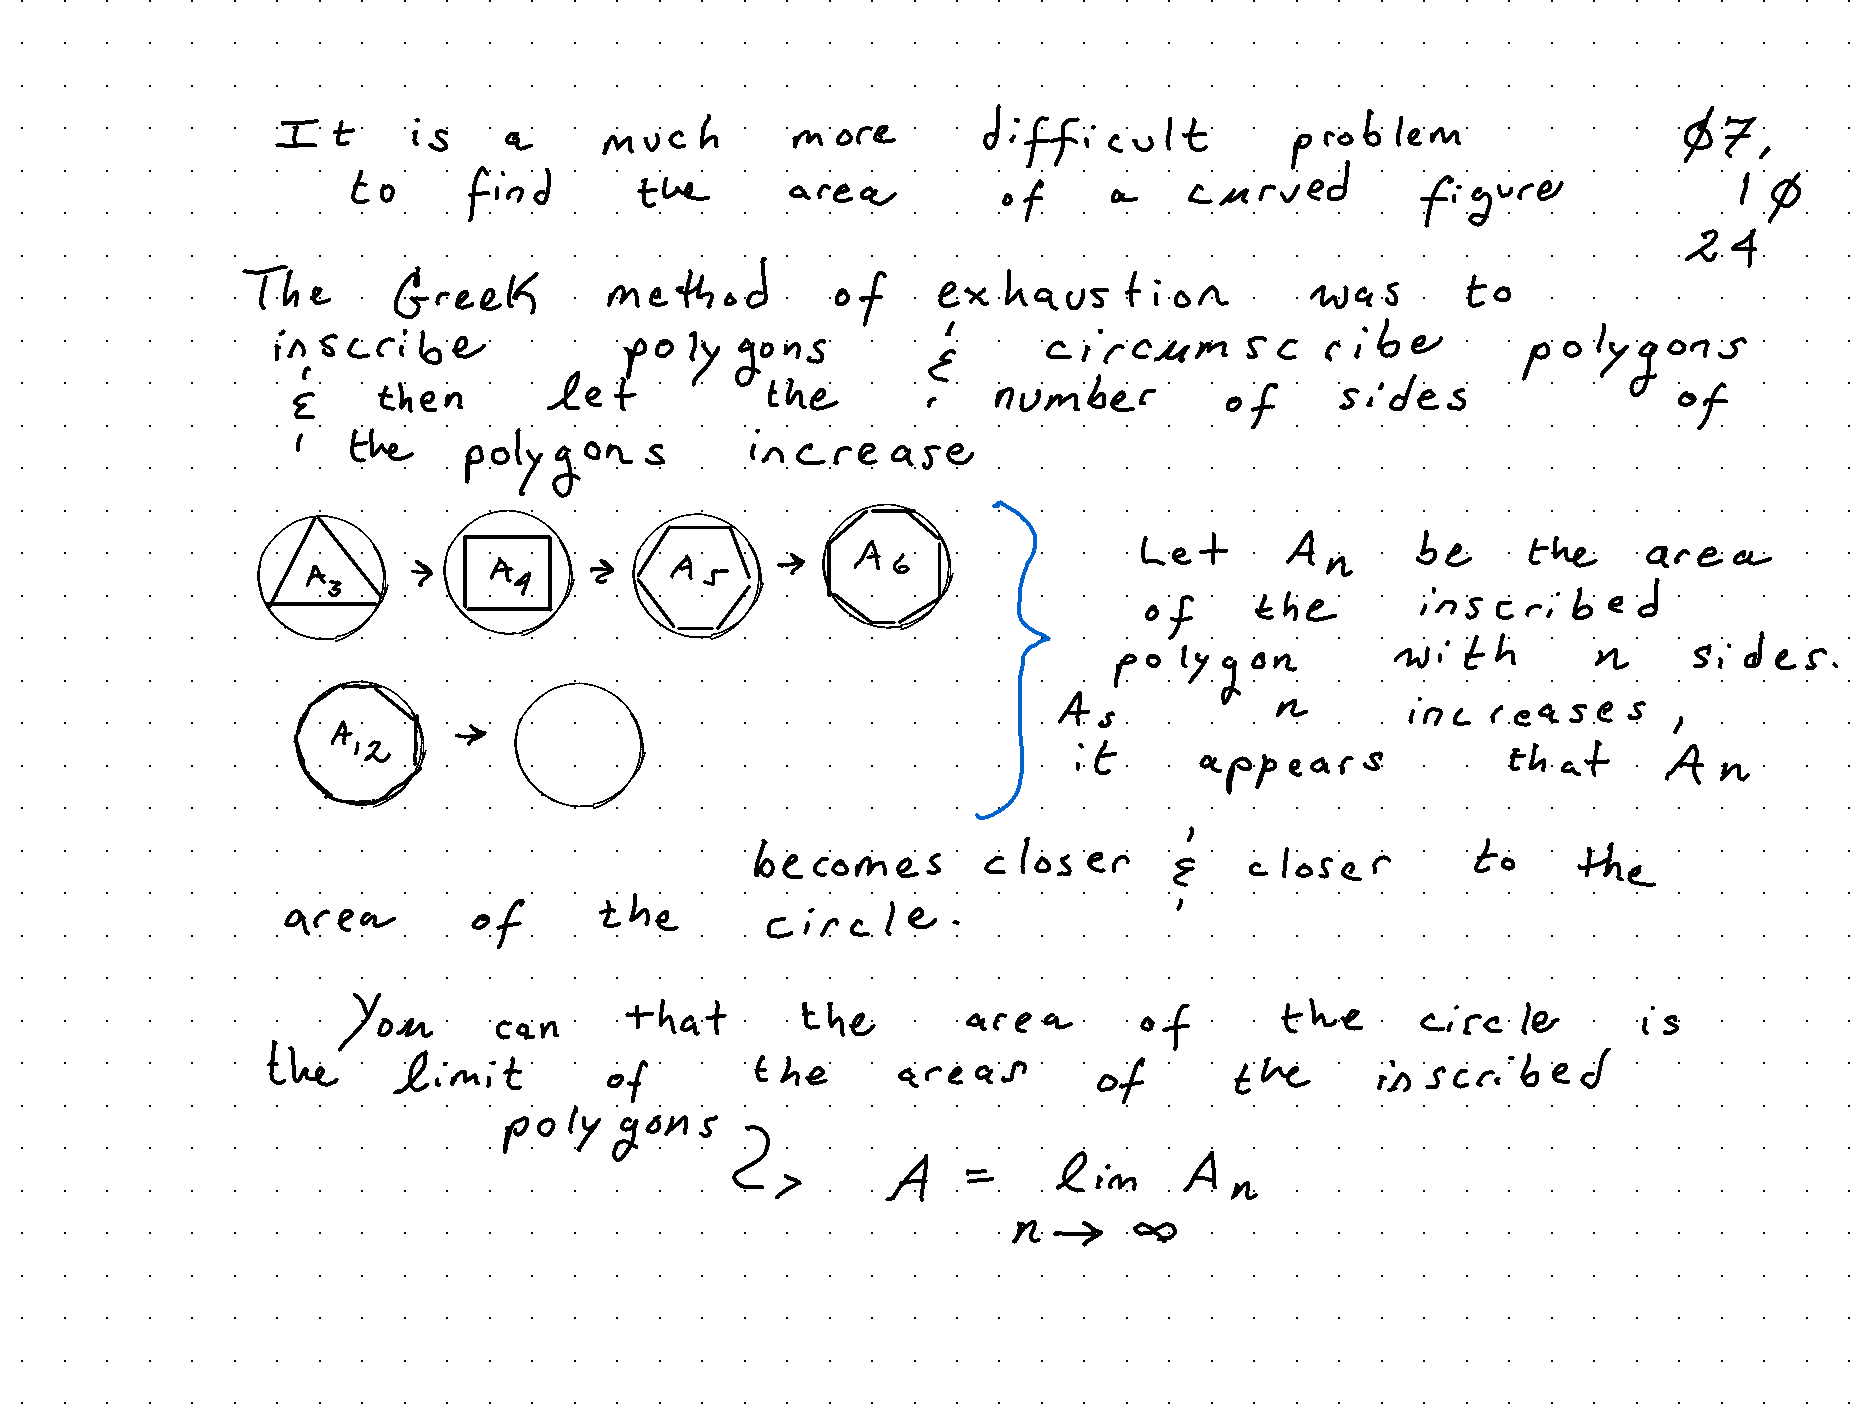 It is a much more difficult problem
to find the area of a curved figure
Ø7,
1Ø
24
The Greek method of exhaustion was to
inscribe polygons & circumscribe polygons
& then let the number of sides of
the polygons increase
A3 → A4 → A5 → A6
A12 →
Let An be the area
of the inscribed
polygon with n sides.
As n increases,
it appears that An
becomes closer & closer to the
area of the circle.
You can that the area of the circle is
the limit of the areas of the inscribed
polygons
A = lim An
n → ∞